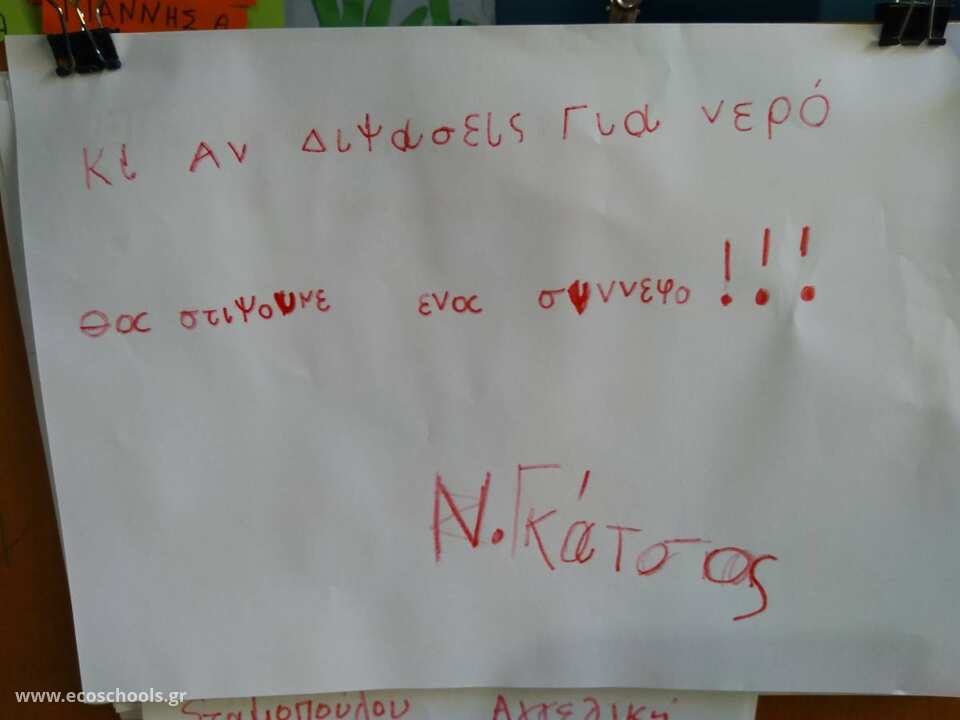 ΙΑΝΝΗΣ Α
Κι Αν Διψασεις Για νερό
Θας στιψουμε ενας συννεφο!!!
Ν. Γκάτσος
www.ecoschools.gr
Σταμοπούλου Αγγελική